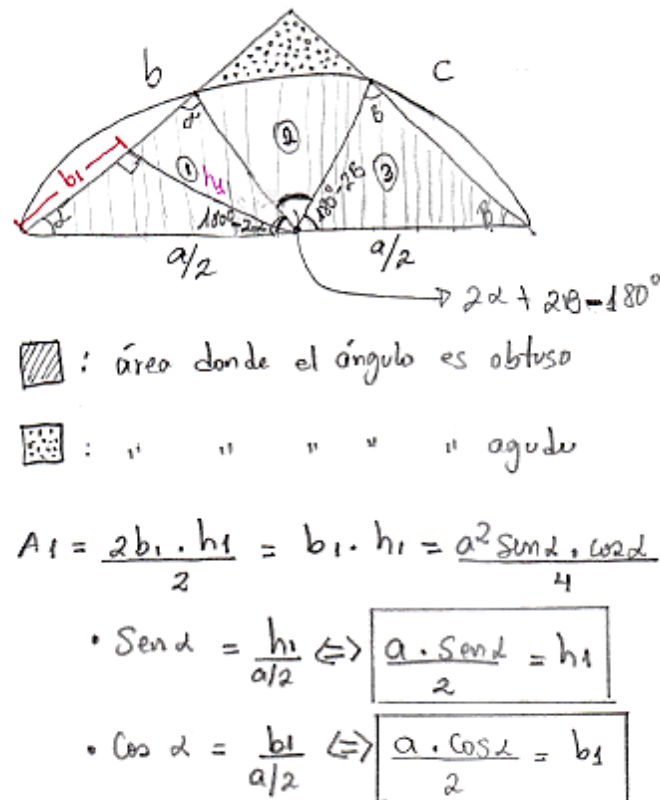 b c
α β
b1 ① h1 ② ③
α 180°-2α 180°-2β β
a/2 a/2
2α + 2β-180°
: área donde el ángulo es obtuso
: " " " " " agudo
A1 = 2b1 . h1 / 2 = b1 . h1 = a² senα . cosα / 4
• Sen α = h1 / a/2 <=> a . Senα / 2 = h1
• Cos α = b1 / a/2 <=> a . Cosα / 2 = b1